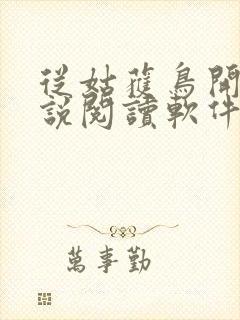 從姑獲鳥開
說閱讀軟件
萬事勤